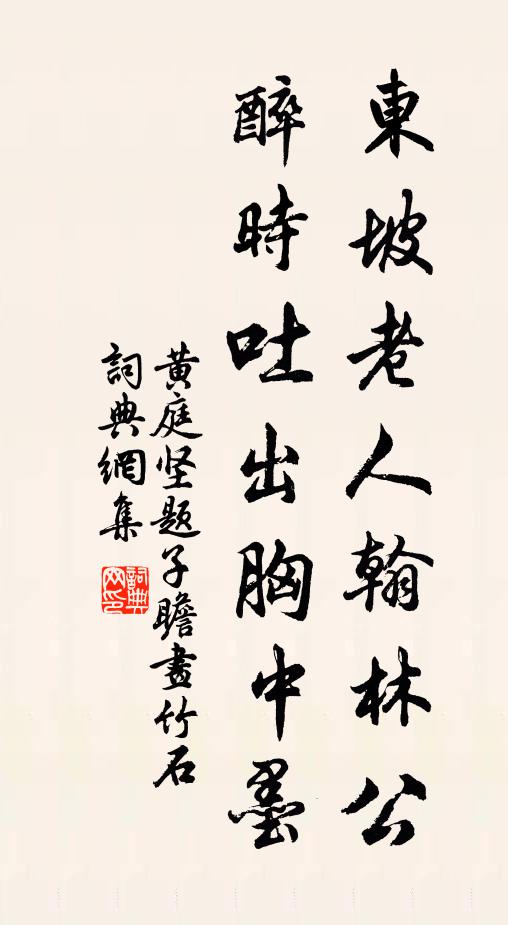 東坡老人翰林公
醉時吐出胸中墨
黄庭坚題子瞻畫竹石
詞典網集
詞典
网印